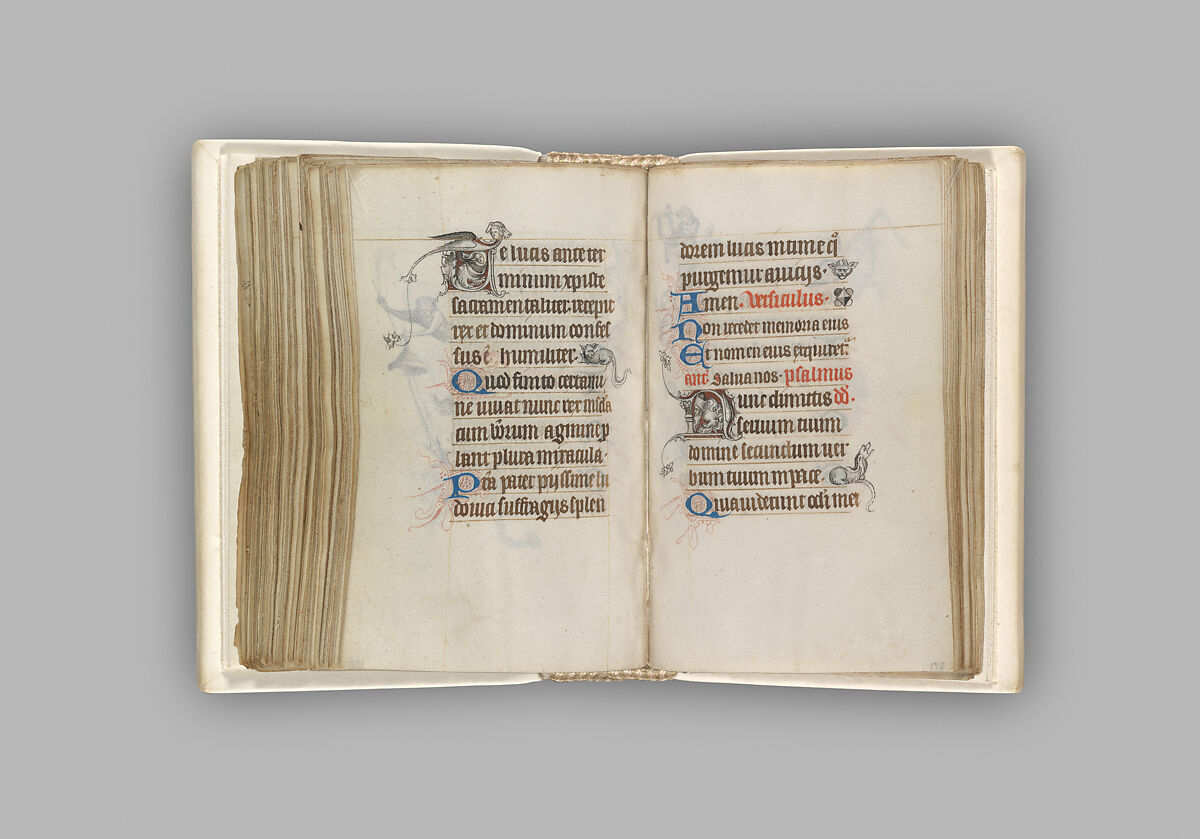 Te lucis ante ter
minum xpiste
sacramentaliter. recepit
rex et dominum confes
sus ē humiliter.
Quod finito certami
ne uiuat nunc rex in scla
cum uorum agmine p
lant plura miracula.
Pr̄a pater pijssime lu
douici suffragijs splen
dorem lucis intime q̄
purgemur a uicijs.
Amen. Versiculus.
Non recedet memoria eius
Et nomen eius requiret̄.
ant̄ Salua nos. psalmus
Nunc dimittis
seruum tuum
domine secundum uer
bum tuum in pace.
Quia uiderunt oculi mei
178